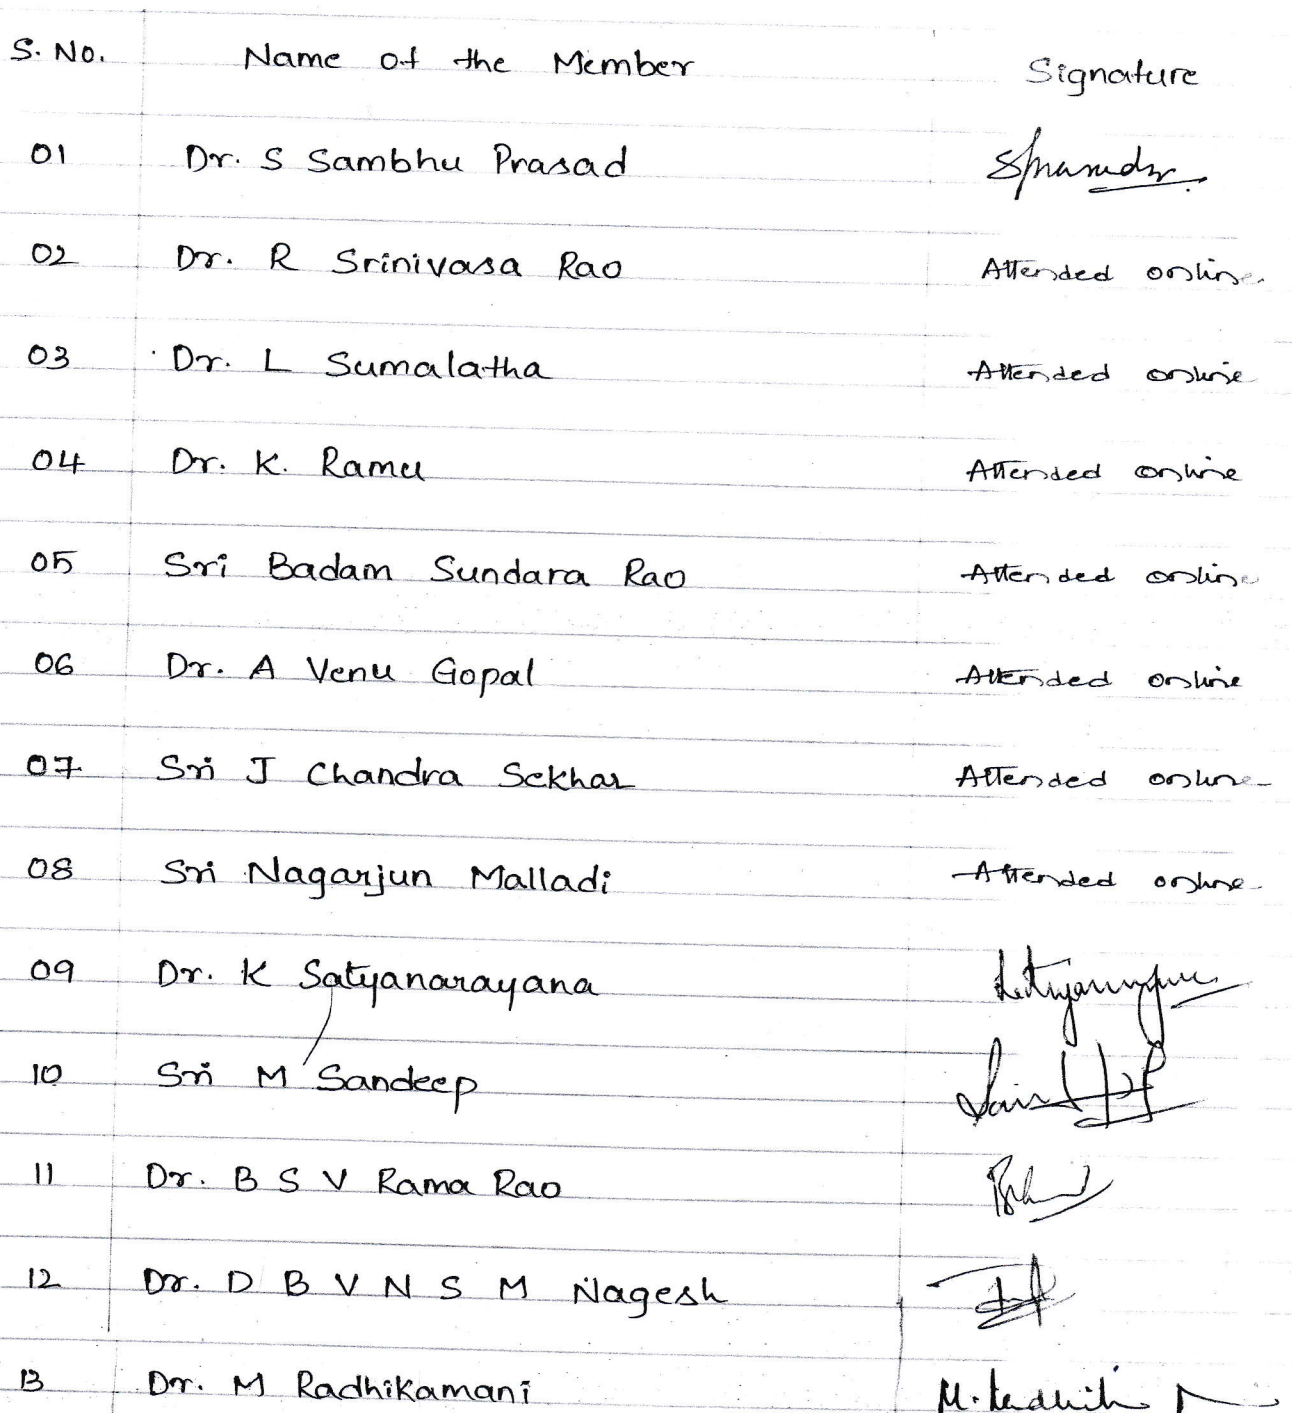 S. No. Name of the Member Signature
01 Dr. S Sambhu Prasad
02 Dr. R Srinivasa Rao Attended online
03 Dr. L Sumalatha Attended online
04 Dr. K. Ramu Attended online
05 Sri Badam Sundara Rao Attended online
06 Dr. A Venu Gopal Attended online
07 Sri J Chandra Sekhar Attended online
08 Sri Nagarjun Malladi Attended online
09 Dr. K Satyanarayana
10 Sri M Sandeep
11 Dr. B S V Rama Rao
12 Dr. D B V N S M Nagesh
13 Dr. M Radhikamani